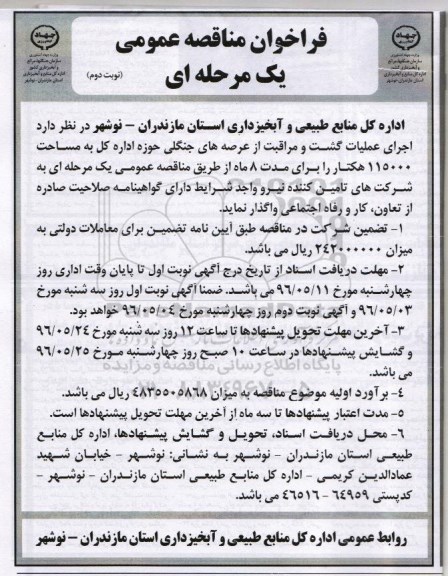 فراخوان مناقصه عمومی
یک مرحله ای
(نوبت دوم)
اداره کل منابع طبیعی و آبخیزداری استان مازندران – نوشهر در نظر دارد
اجرای عملیات گشت و مراقبت از عرصه های جنگلی حوزه اداره کل به مساحت
۱۱۵۰۰۰ هکتار را برای مدت ۸ ماه از طریق مناقصه عمومی یک مرحله ای به
شرکت های تامین کننده نیرو واجد شرایط دارای گواهینامه صلاحیت صادره
از تعاون، کار و رفاه اجتماعی واگذار نماید.
۱- تضمین شرکت در مناقصه طبق آیین نامه تضمین برای معاملات دولتی به
میزان ۲۴۲۰۰۰۰۰۰ ریال می باشد.
۲- مهلت دریافت اسناد از تاریخ درج آگهی نوبت اول تا پایان وقت اداری روز
چهارشنبه مورخ ۹۶/۰۵/۱۱ می باشد. ضمنا آگهی نوبت اول روز سه شنبه مورخ
۹۶/۰۵/۰۳ و آگهی نوبت دوم روز چهارشنبه مورخ ۹۶/۰۵/۰۴ خواهد بود.
۳- آخرین مهلت تحویل پیشنهادها تا ساعت ۱۲ روز سه شنبه مورخ ۹۶/۰۵/۲۴
و گشایش پیشنهادها در ساعت ۱۰ صبح روز چهارشنبه مورخ ۹۶/۰۵/۲۵
می باشد.
۴- برآورد اولیه موضوع مناقصه به میزان ۴۸۳۵۵۰۵۸۶۸ ریال می باشد.
۵- مدت اعتبار پیشنهادها تا سه ماه از آخرین مهلت تحویل پیشنهادها است.
۶- محل دریافت اسناد، تحویل و گشایش پیشنهادها، اداره کل منابع
طبیعی استان مازندران – نوشهر به نشانی: نوشهر – خیابان شهید
عمادالدین کریمی – اداره کل منابع طبیعی استان مازندران – نوشهر –
کدپستی ۶۴۹۵۹ – ۴۶۵۱۶ می باشد.
روابط عمومی اداره کل منابع طبیعی و آبخیزداری استان مازندران – نوشهر